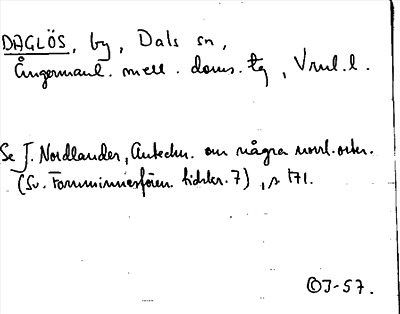 DAGLÖS, by, Dals sn,
Ångermanl. mell. doms. tg, Vrnl. l.
Se J. Nordlander, Anteckn. om några norrl. orter.
(Sv. Fornminnesfören. tidskr. 7), s. 171.
OJ-57.